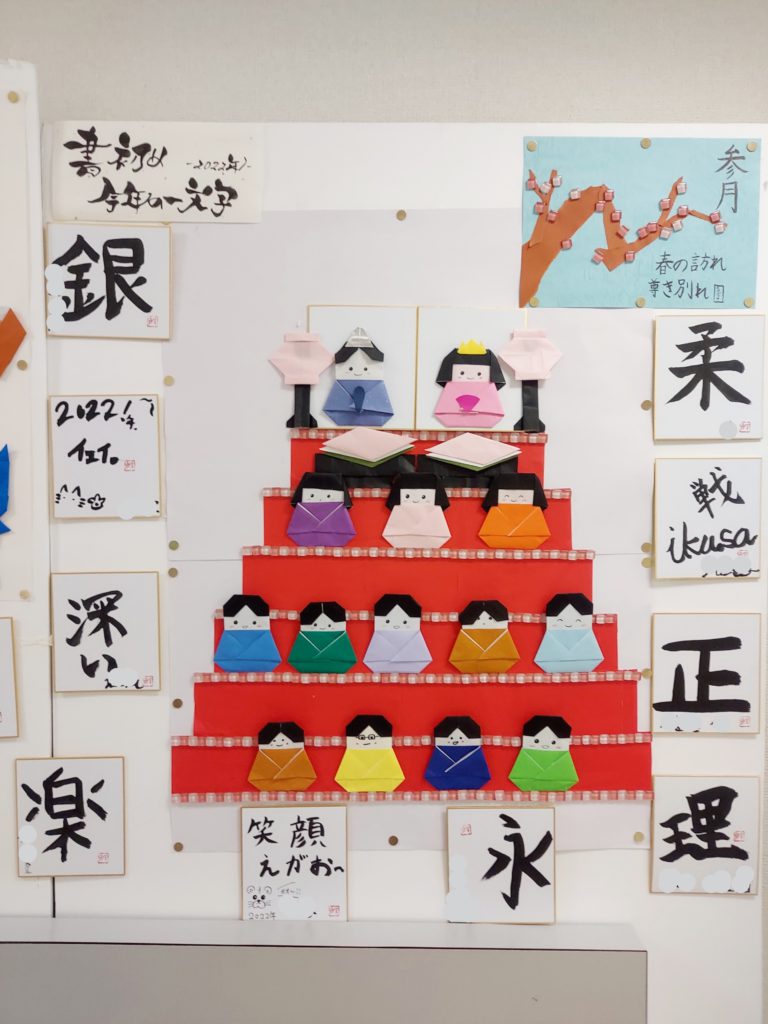 書初め -2022年-
今年の一文字
参月
春の訪れ
尊き別れ
銀
2022年
イェイ。
深い
楽
柔
戦
ikusa
正
理
笑顔
えがお〜
2022年
永